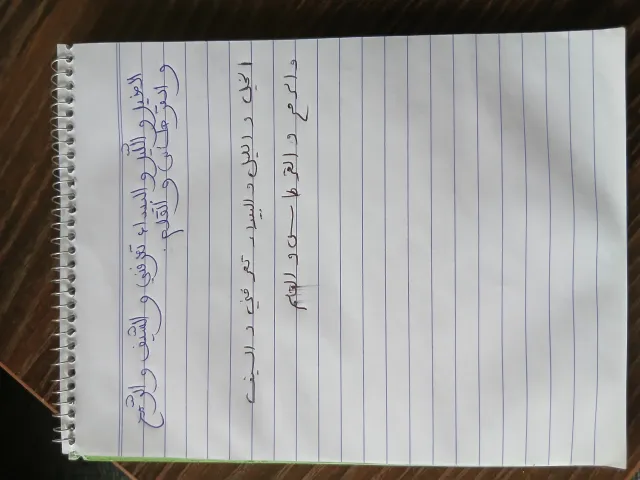 الخيل و الليل و البيداء تعرفني و السيف و الرمح
و القرطاس و القلم
الخيل و الليل و البيداء تعرفني و السيف
و الرمح و القرطاس و القلم